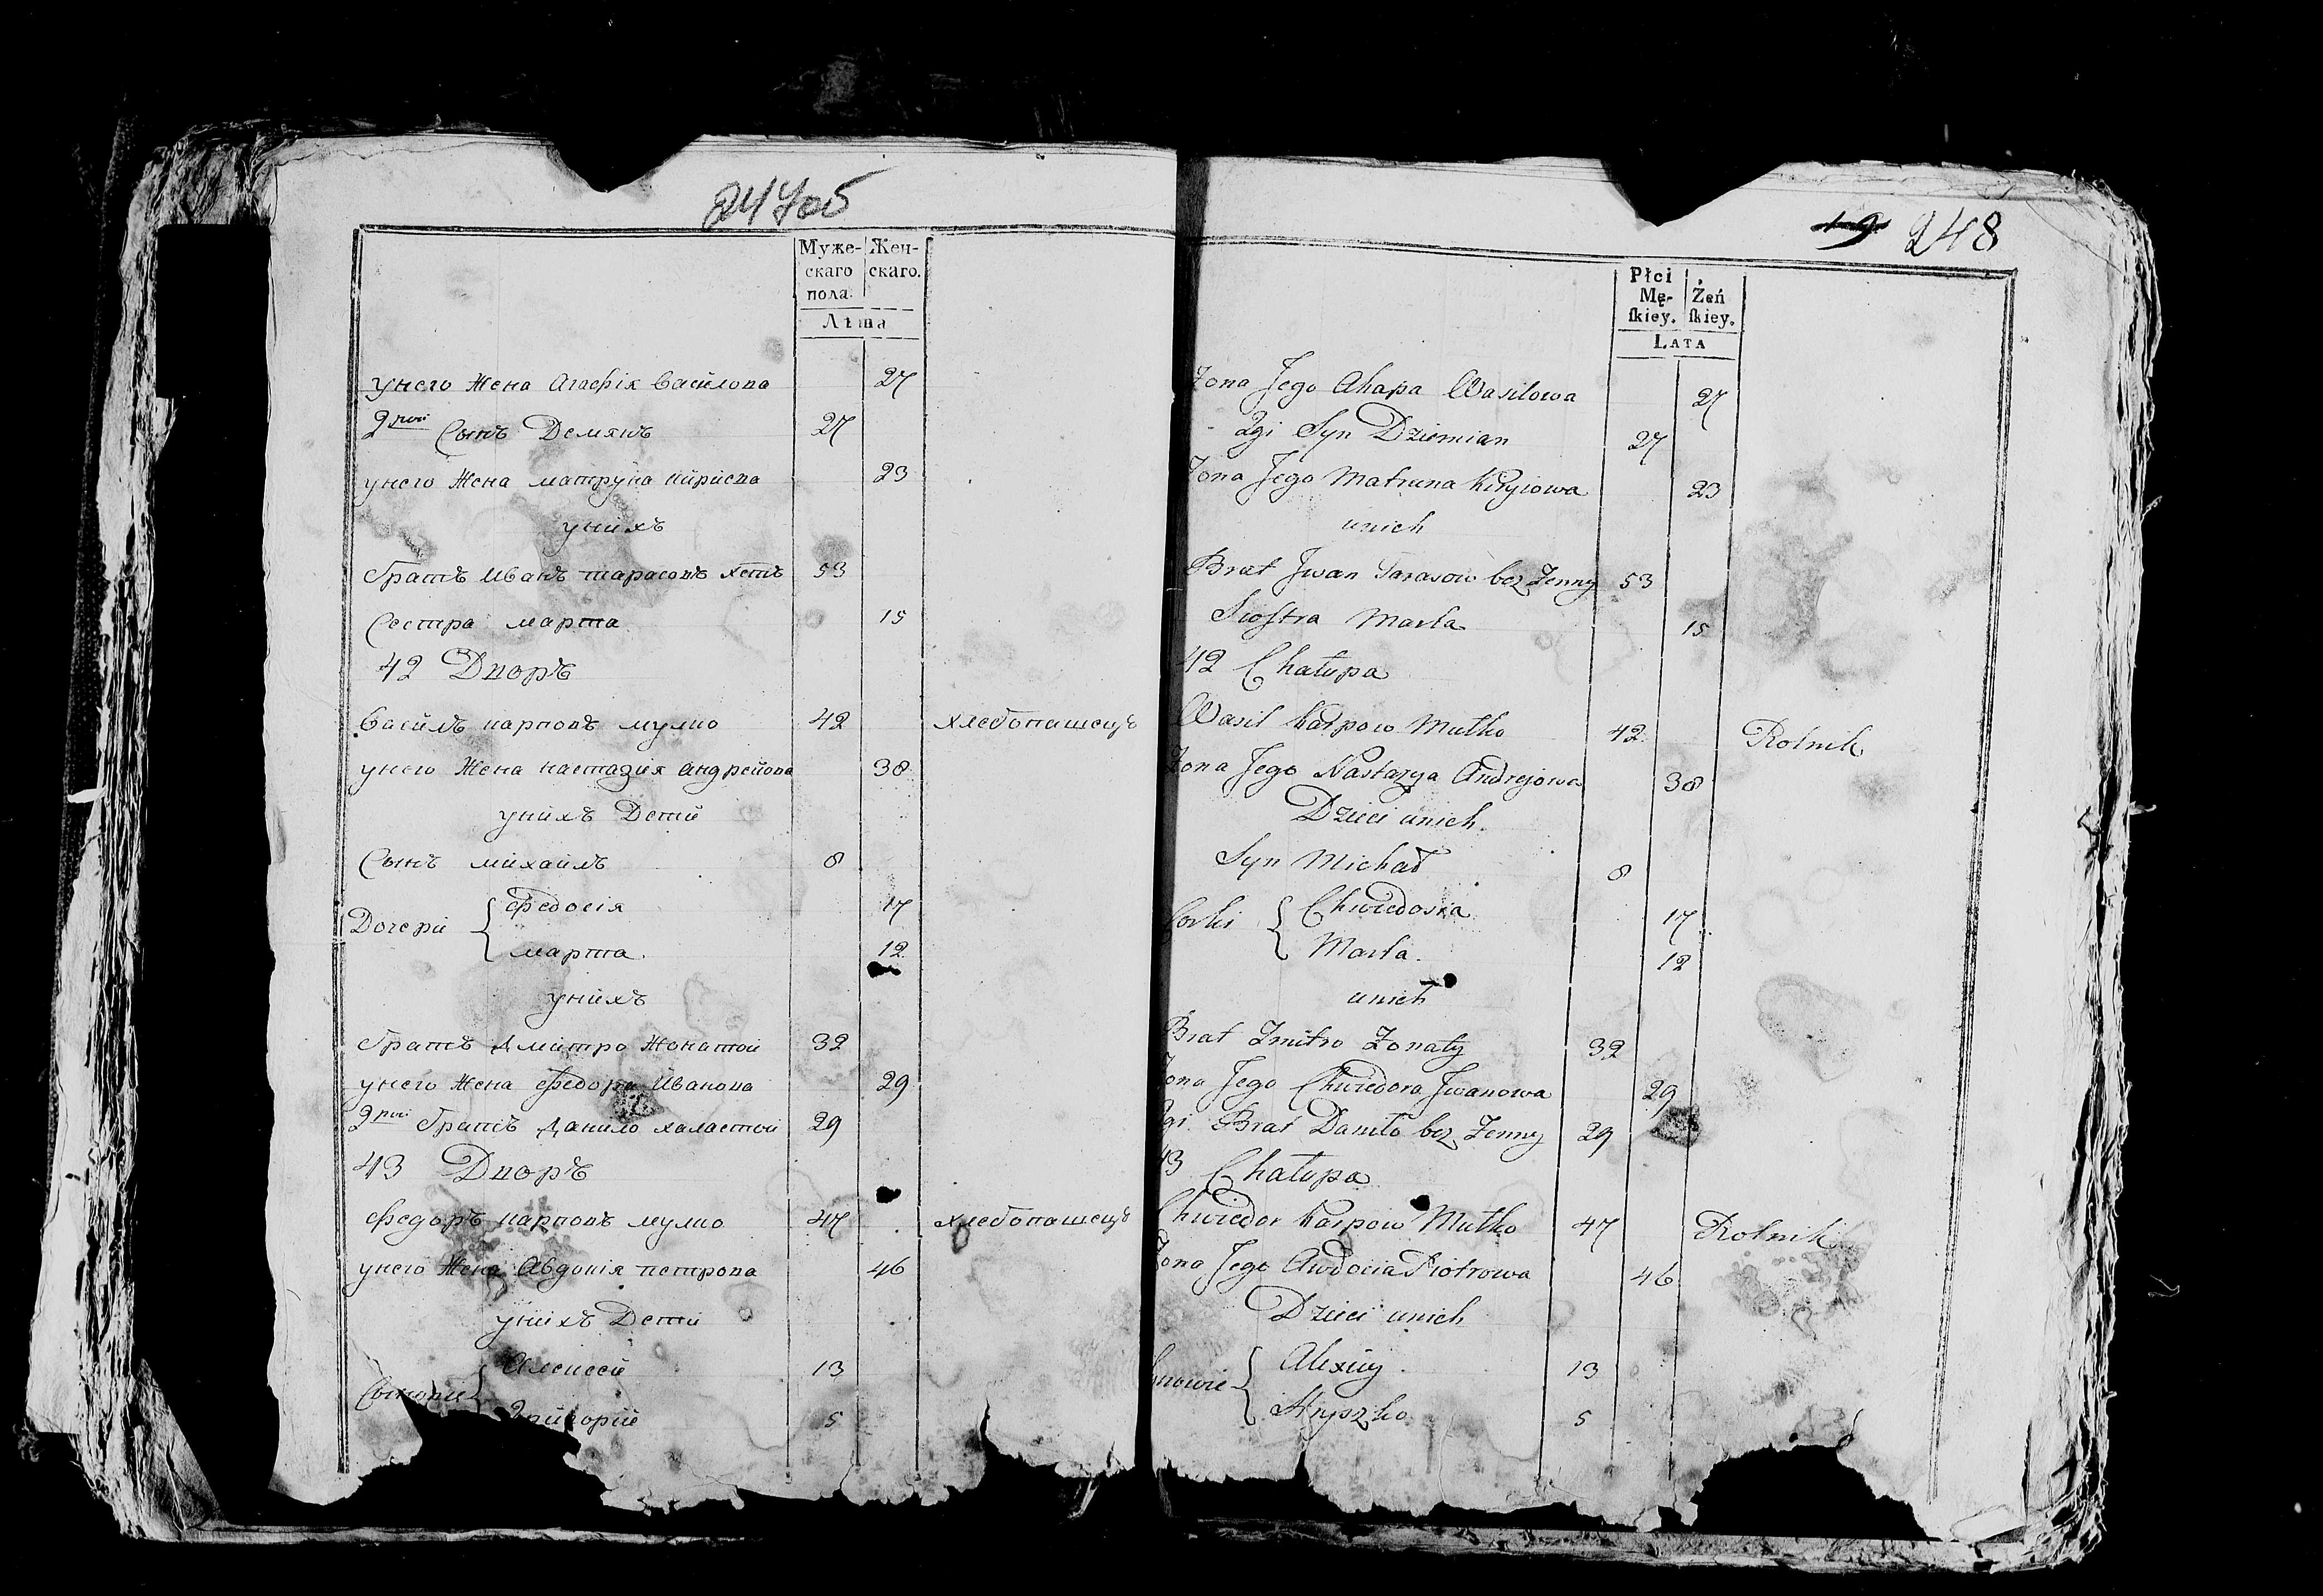 247об
Муже- Жен-
скаго скаго.
пола.
Лѣта
унего Жена Агафія Василова 27
2гой Сынъ Демянъ 27
унего Жена матруна кириева 23
унихъ
братъ Иванъ тарасовъ 53
Сестра марта 15
42 Дворъ
Василь карповъ мулко 42 хлебопашецъ
унего Жена настазия андрейова 38
унихъ Дети
Сынъ михайлъ 8
Дочери { федосія 17
марта. 12
унихъ
братъ дмитро Жонатой 32
унего Жена федора Иванова 29
2гой братъ данило халастой 29
43 Дворъ
федоръ карповъ мулко 47 хлебопашецъ
унего Жена Авдокія петрова 46
унихъ Дети
Сынове { Алексей 13
Григорий 5
19 248
Płci
Mę- Żeń
ſkiey. ſkiey.
LATA
Zona Jego Ahapa Wasilowa 27
2gi Syn Dziemian 27
Zona Jego Matruna Kiryiowa 23
unich
Brat Jwan Tarasow bez Zenny 53
Siostra Marta 15
42 Chałupa
Wasil Karpow Mułko 42 Rolnik
Zona Jego Nastazya Andrejowa 38
Dzieci unich.
Syn Michał 8
Corki { Chwiedosia 17
Marta. 12
unich
Brat Zmitro Zonaty 32
Zona Jego Chwiedora Jwanowa 29
2gi Brat Daniło bez Zenny 29
43 Chałupa
Chwiedor Karpow Mułko 47 Rolnik
Zona Jego Awdocia Piotrowa 46
Dzieci unich
Synowie { Alexiey 13
Hryszko 5